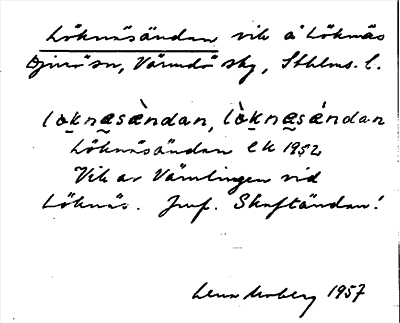 Löknäsändan vik å Löknäs
Djurö sn, Värmdö skg, Sthlms. l.
lo̱knæ̱sæ̀ndan, lò̱knæ̱sǽndan
Löknäsändan Ek 1952
Vik av Vämlingen vid
Löknäs. Jmf. Skaftändan!
Lena Moberg 1957